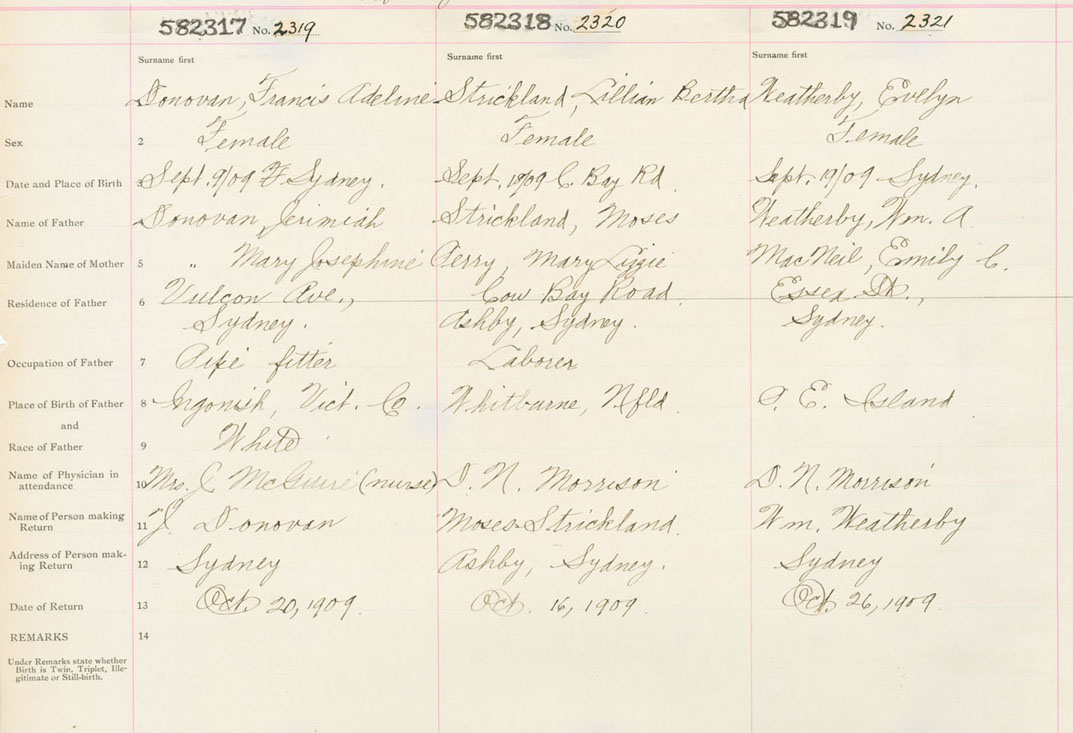 582317 No. 2319 582318 No. 2320 582319 No. 2321
Surname first Surname first Surname first
Name Donovan, Francis Adeline Strickland, Lillian Bertha Weatherby, Evelyn
Sex 2 Female Female Female
Date and Place of Birth 3 Sept. 9/09 Sydney. Sept. 19/09 C. Bay Rd Sept. 19/09 Sydney.
Name of Father Donovan, Jerimiah Strickland, Moses Weatherby, Wm. A.
Maiden Name of Mother 5 " Mary Josephine Perry, Mary Lizzie MacNeil, Emily C.
Residence of Father 6 Vulcan Ave., Cow Bay Road. Essex St.,
Sydney. Ashby, Sydney. Sydney.
Occupation of Father 7 Pipe fitter Laborer
Place of Birth of Father 8 Ingonish, Vict. Co. Whitburne, Nfld. P. E. Island
and
Race of Father 9 White
Name of Physician in
attendance 10 Mrs. J. (nurse) D. N. Morrison D. N. Morrison
Name of Person making
Return 11 J. Donovan Moses Strickland. Wm. Weatherby
Address of Person mak-
ing Return 12 Sydney Ashby, Sydney. Sydney
Date of Return 13 Oct. 20, 1909. Oct. 16, 1909. Oct. 26, 1909.
REMARKS 14
Under Remarks state whether
Birth is Twin, Triplet, Ille-
gitimate or Still-birth.